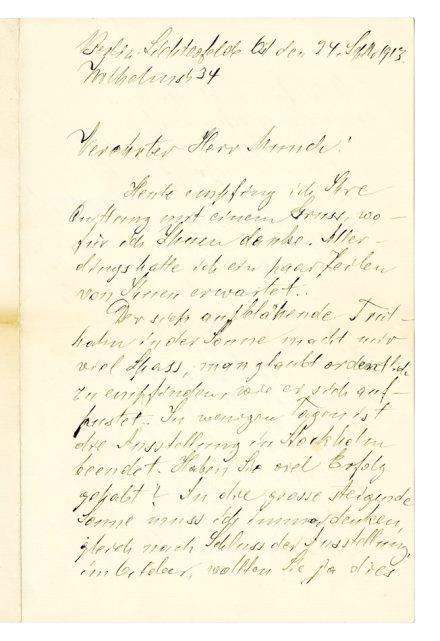 Berlin-Lichterfelde Ost den 24. Sept. 1913.
Wilhelmstr. 34
Verehrter Herr Munch!
Heute empfing ich Ihre
Quittung mit einem Gruss, wo-
für ich Ihnen danke. Aller-
dings hatte ich ein paar Zeilen
von Ihnen erwartet..
Der sich aufblähende Trut-
hahn in der Sonne macht mir
viel Spass, man glaubt ordentlich
zu empfinden, wie er sich auf-
pustet.. In wenigen Tagen ist
die Ausstellung in Stockholm
beendet. Haben Sie viel Erfolg
gehabt? In die grosse steigende
Sonne muss ich immer denken,
gleich nach Schluss der Ausstellung,
im October, wollten Sie ja dies